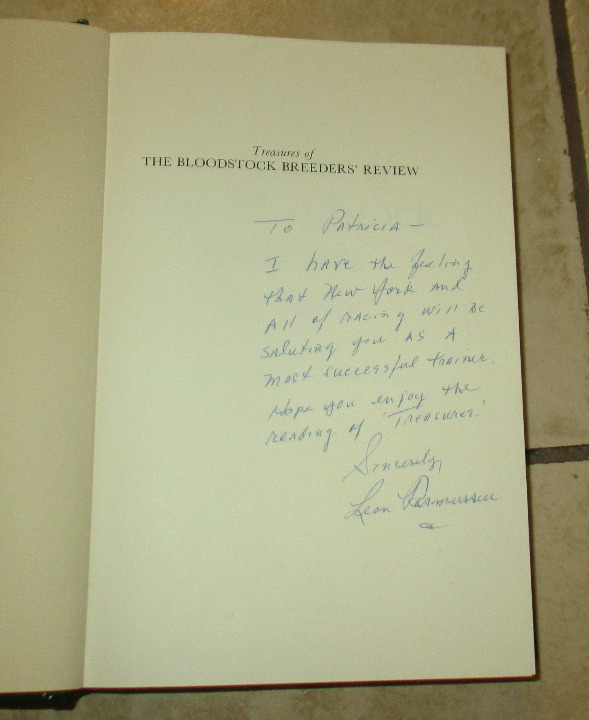 Treasures of
THE BLOODSTOCK BREEDERS' REVIEW
To Patricia —
I have the feeling
that New York and
all of racing will be
saluting you as a
most successful trainer.
Hope you enjoy the
reading of 'Treasures.'
Sincerely,
Leon Rasmussen